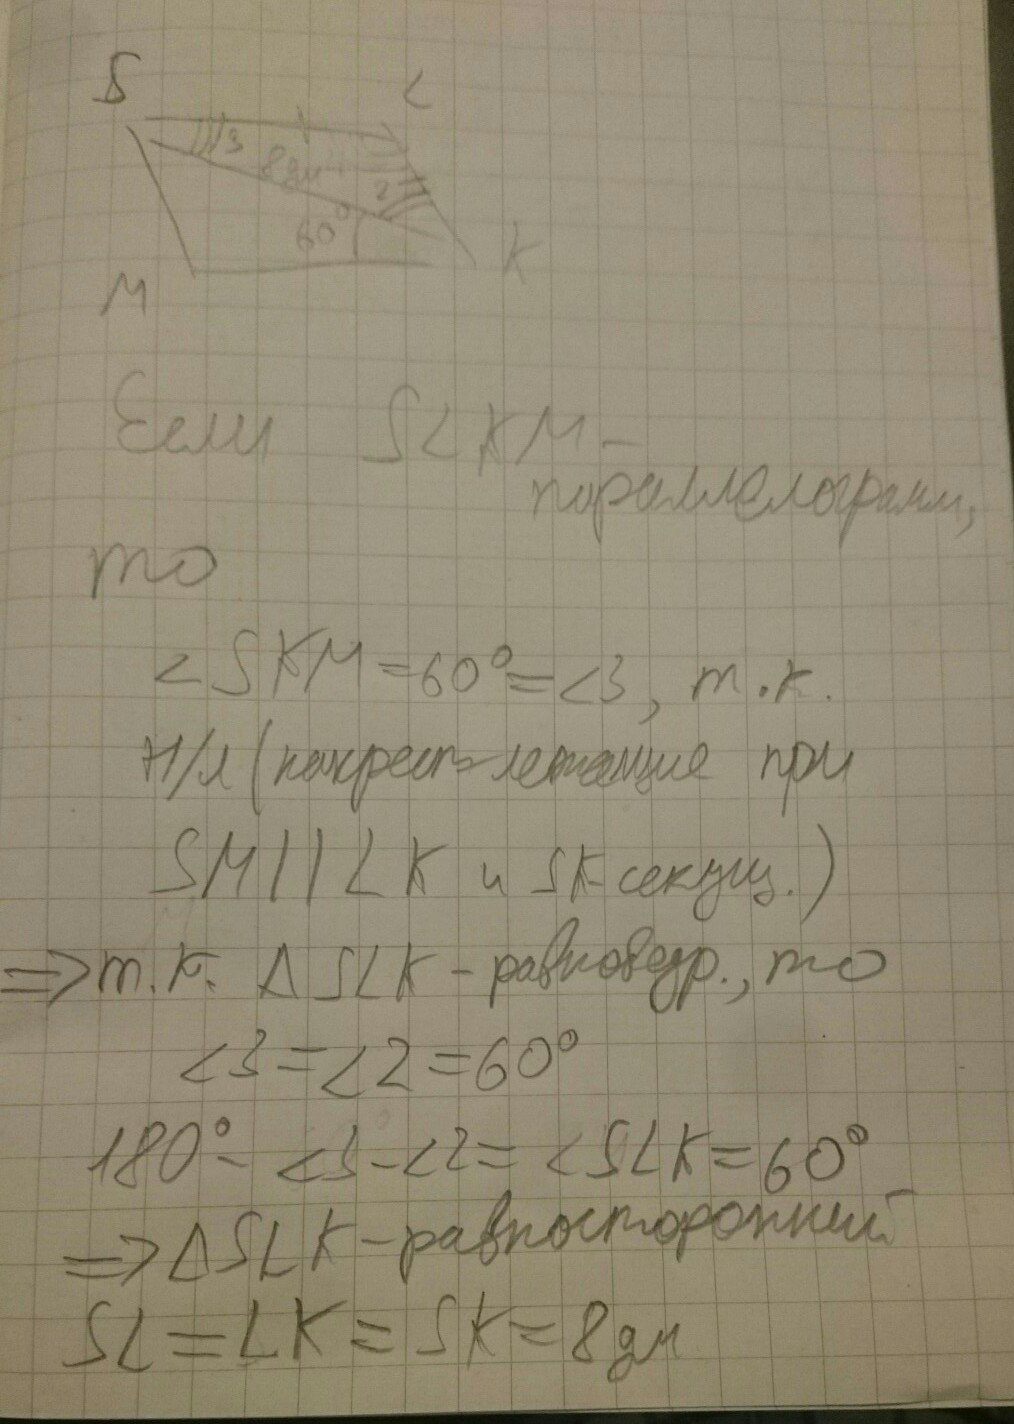 S L
3
8дм
2
60°
K
M
Если SLKM –
параллелограмм,
то
<SKM=60°=<3, т.к.
н/л (накрест-лежащие при
SM||LK и SK секущ.)
=>т.к. Δ SLK – равнобедр., то
<3=<2=60°
180°- <3-<2= <SLK=60°
=> ΔSLK – равносторонний
SL=LK=SK=8дм